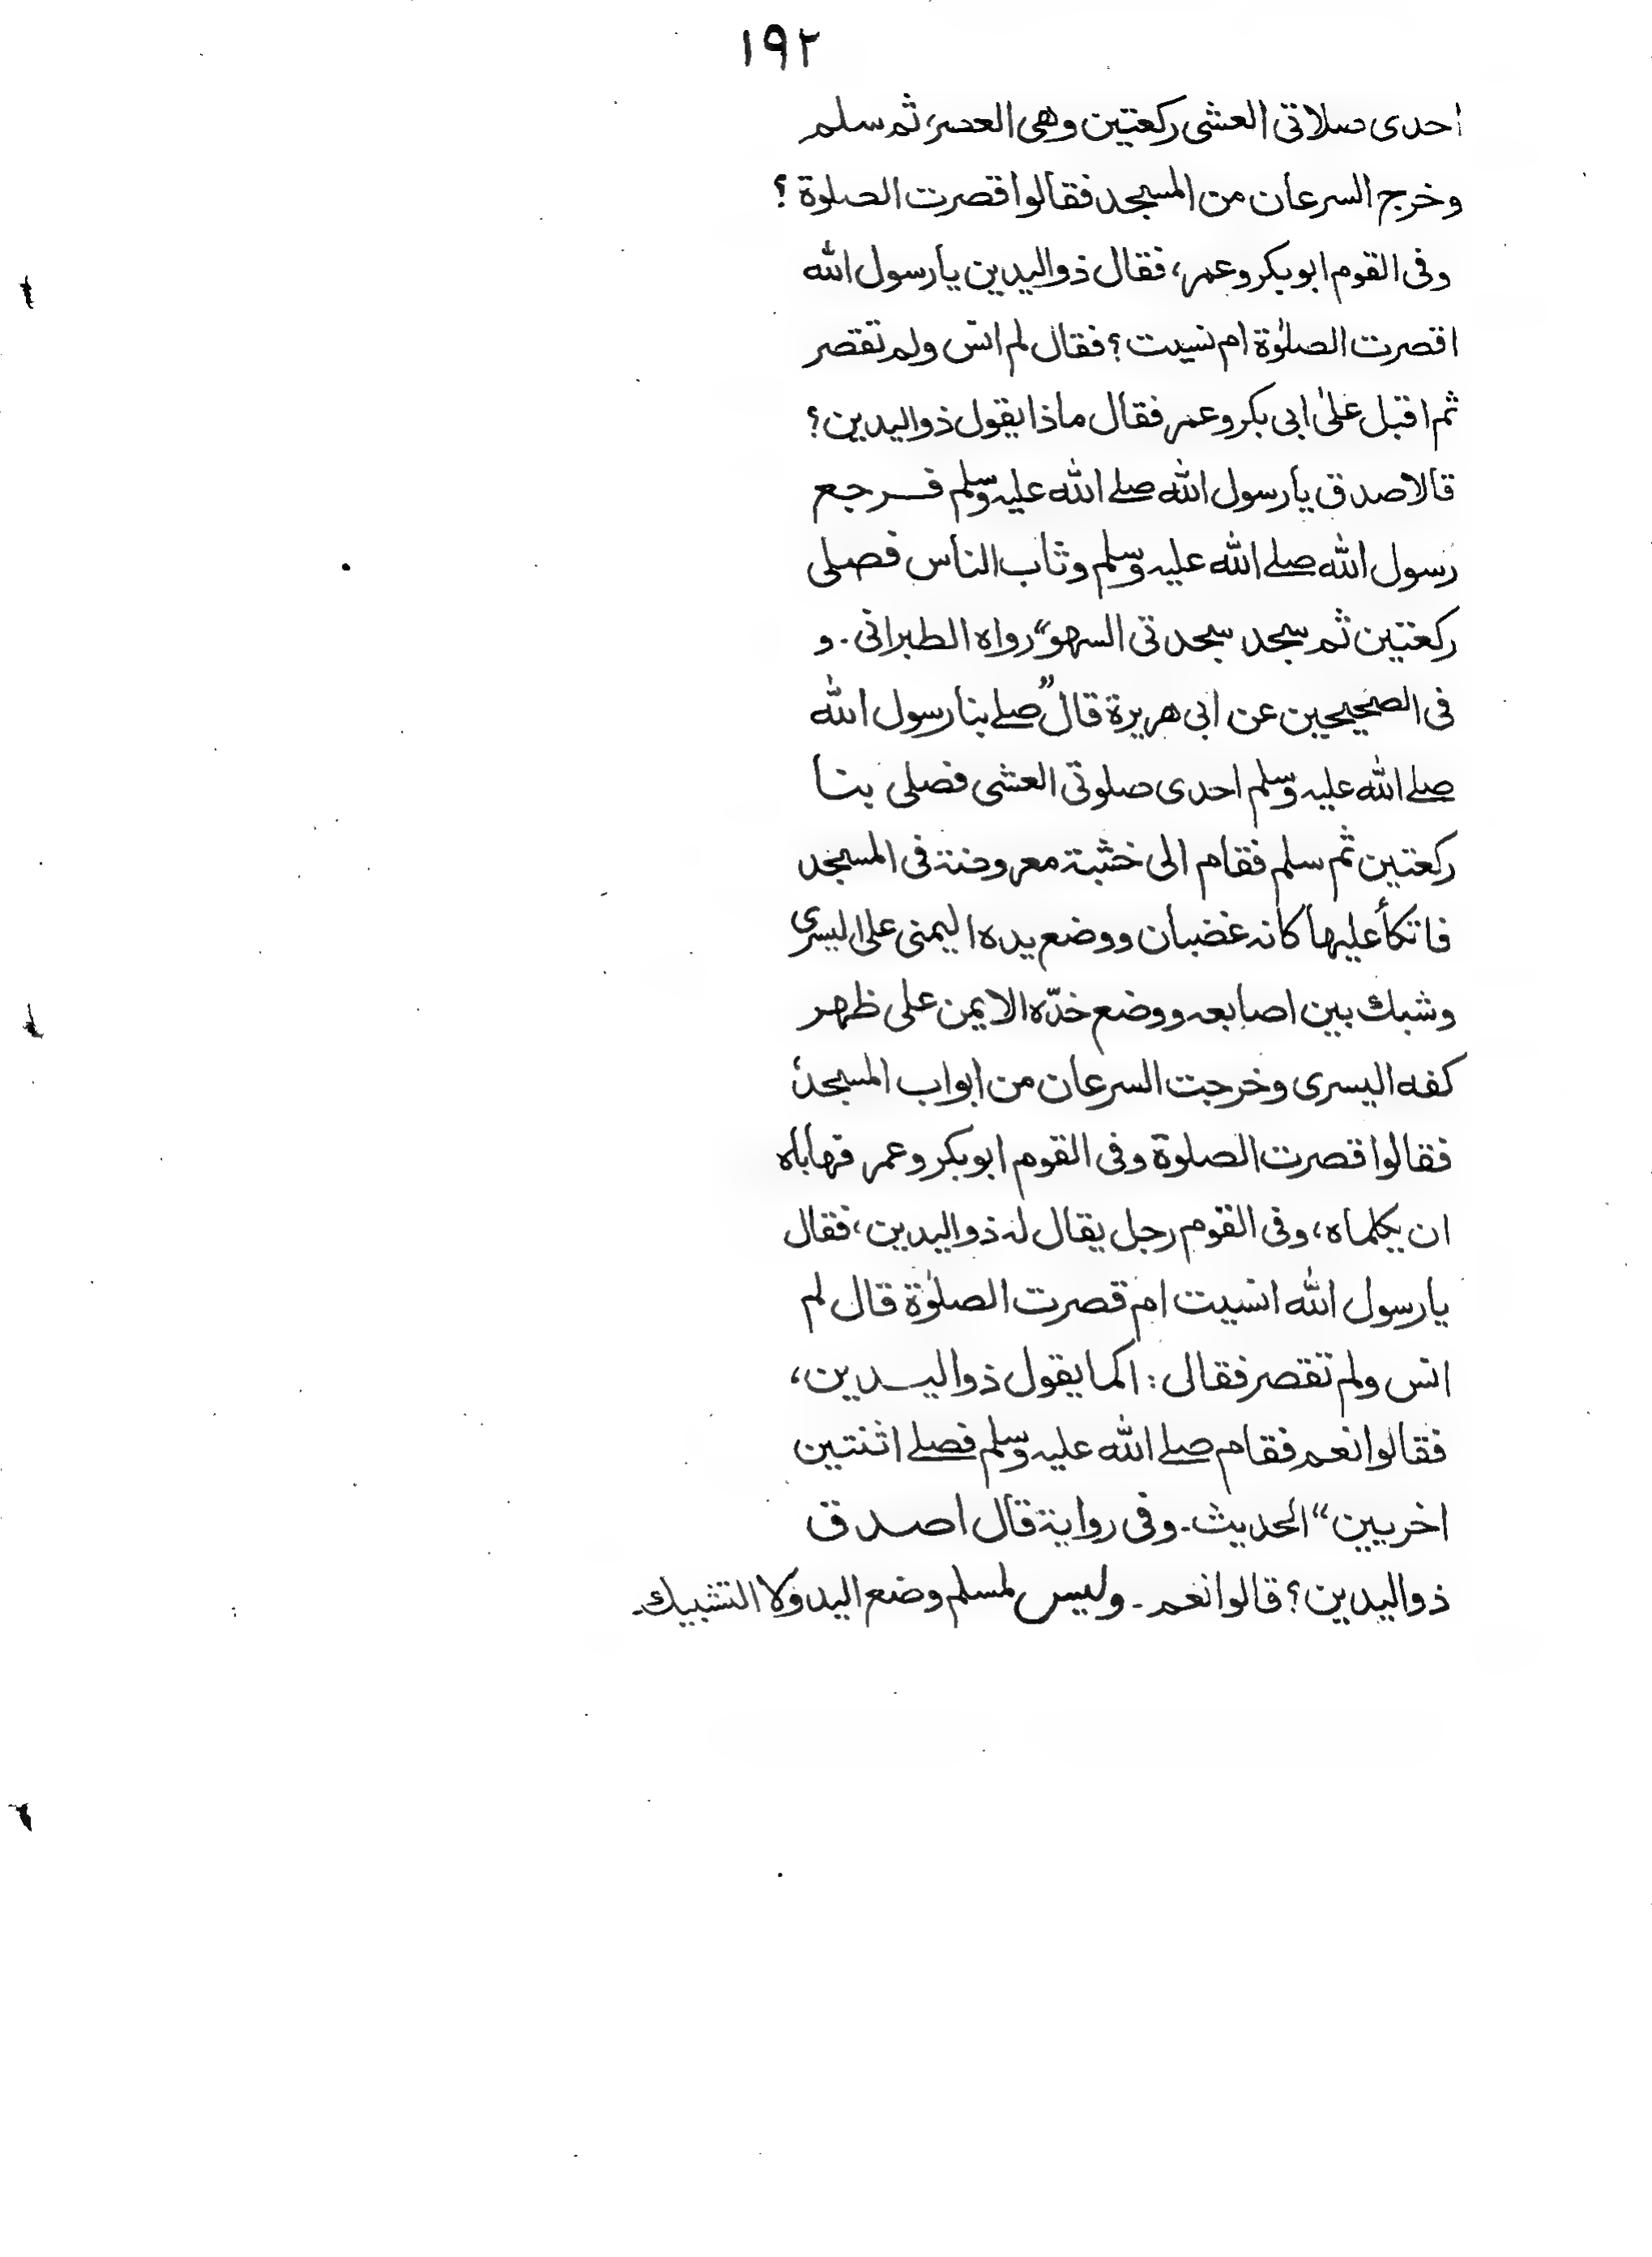 ١٩٢
احدى صلاتى العشى ركعتين وهى العصر، ثم سلم
وخرج السرعان من المسجد فقالوا قصرت الصلوة ؟
وفى القوم ابوبكر وعمر، فقال ذواليدين يا رسول الله
اقصرت الصلوٰة ام نسيت؟ فقال لم انس ولم تقصر
ثم اقبل علىٰ ابى بكر وعمر فقال ماذا يقول ذواليدين؟
قالا صدق يا رسول الله صلے الله عليه وسلم فرجع
رسول الله صلے الله عليه وسلم وثاب الناس فصلى
ركعتين ثم سجد سجدتى السهو“ رواه الطبرانى ۔ و
فى الصحيحين عن ابى هريرة قال ”صلے بنا رسول الله
صلے الله عليه وسلم احدى صلوتى العشى فصلى بنا
ركعتين ثم سلم فقام الى خشبة معروضة فى المسجد
فاتكأ عليها كانه غضبان ووضع يده اليمنى على اليسرى
وشبك بين اصابعه ووضع خدّه الايمن على ظهر
كفه اليسرى وخرجت السرعان من ابواب المسجد،
فقالوا قصرت الصلوة وفى القوم ابوبكر وعمر فهاباه
ان يكلماه، وفى القوم رجل يقال له ذواليدين، فقال
يا رسول الله انسيت ام قصرت الصلوٰة قال لم
انس ولم تقصر فقال : اكما يقول ذواليدين،
فقالوا نعم فقام صلے الله عليه وسلم فصلے اثنتين
اخريين“ الحديث۔ وفى رواية قال اصدق
ذواليدين؟ قالوا نعم ۔ وليس لمسلم وضع اليد ولا التشبيك۔